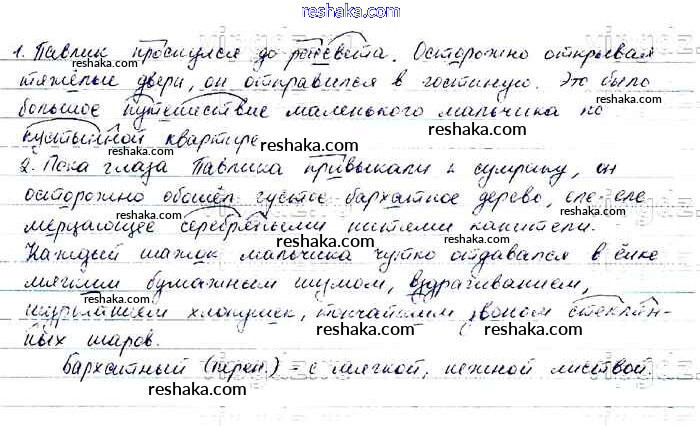 reshaka.com
1. Павлик проснулся до рассвета. Осторожно открывая
тяжёлые двери, он отправился в гостиную. Это было
большое путешествие маленького мальчика по
пустынной квартире.
2. Пока глаза Павлика привыкали к сумраку, он
осторожно обошёл густое бархатное дерево, еле-еле
мерцающее серебряными нитями канители.
Каждый шажок мальчика чутко отдавался в ёлке
мягким бумажным шумом, вздрагиванием,
шуршанием хлопушек, тончайшим звоном стеклян-
ных шаров.
Бархатный (перен.) - с мягкой, нежной листвой.
reshaka.com